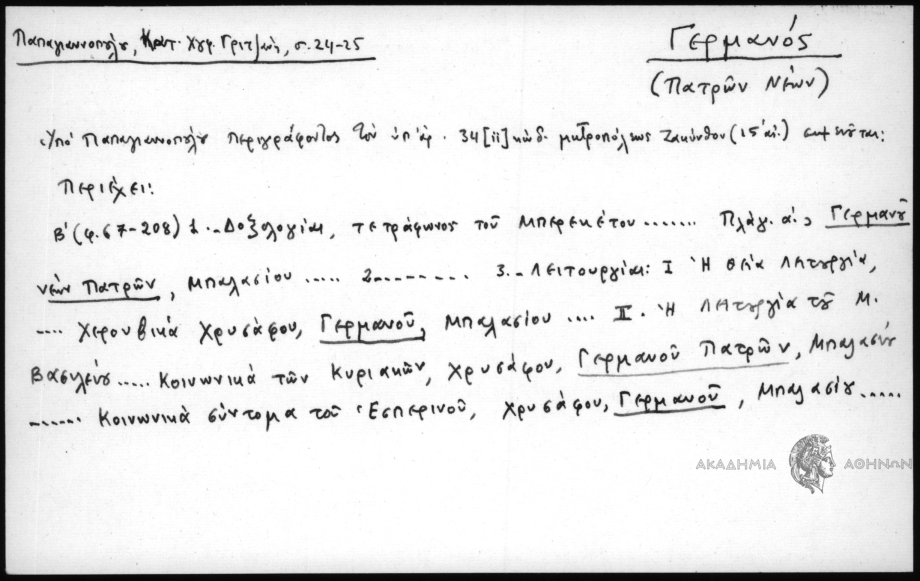 Παπαγιαννοπούλου, Κατ. Χγφ. Γριτσάνη, σ. 24-25
Γερμανός
(Πατρῶν Νέων)
Ὑπό Παπαγιαννοπούλου περιγράφοντος τόν ὑπ' ἀρ. 34[ii] κώδ. μητροπόλεως Ζακύνθου (15 αἰ.) σημειοῦται:
Περιέχει:
Β' (φ. 67-208) 1.- Δοξολογίαι, τετράφωνος τοῦ Μπερεκέτου ....... Πλάγ. ά., Γερμανοῦ
νέων Πατρῶν, Μπαλασίου ..... 2......... 3.- Λειτουργίαι: I Ἡ θεία Λειτουργία,
.... Χερουβικά Χρυσάφου, Γερμανοῦ, Μπαλασίου .... II. Ἡ Λειτουργία τοῦ Μ.
Βασιλείου ..... Κοινωνικά τῶν Κυριακῶν, Χρυσάφου, Γερμανοῦ Πατρῶν, Μπαλασίου
....... Κοινωνικά σύντομα τοῦ Ἑσπερινοῦ, Χρυσάφου, Γερμανοῦ, Μπαλασίου .....
ΑΚΑΔΗΜΙΑ ΑΘΗΝΩΝ